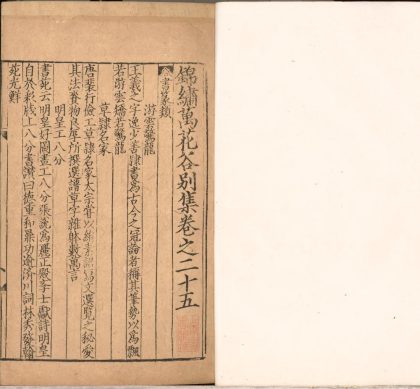 錦繡萬花谷别集卷之二十五
書篆類
游雲驚龍
王羲之字逸少善隷書爲古今之冠論者稱其筆勢以爲飄
若游雲矯若驚龍
草隷名家
唐裴行儉工草隷名家太宗嘗以絹素詔寫文選覽之秘愛
其法賚物良厚所撰選譜草字雜體數萬言
明皇工八分
書苑云明皇好圖畫工八分張説爲麗正學士獻詩明皇
自於彩牋上八分書讚曰德重和羹功逾濟川詞林秀發翰
苑光鮮